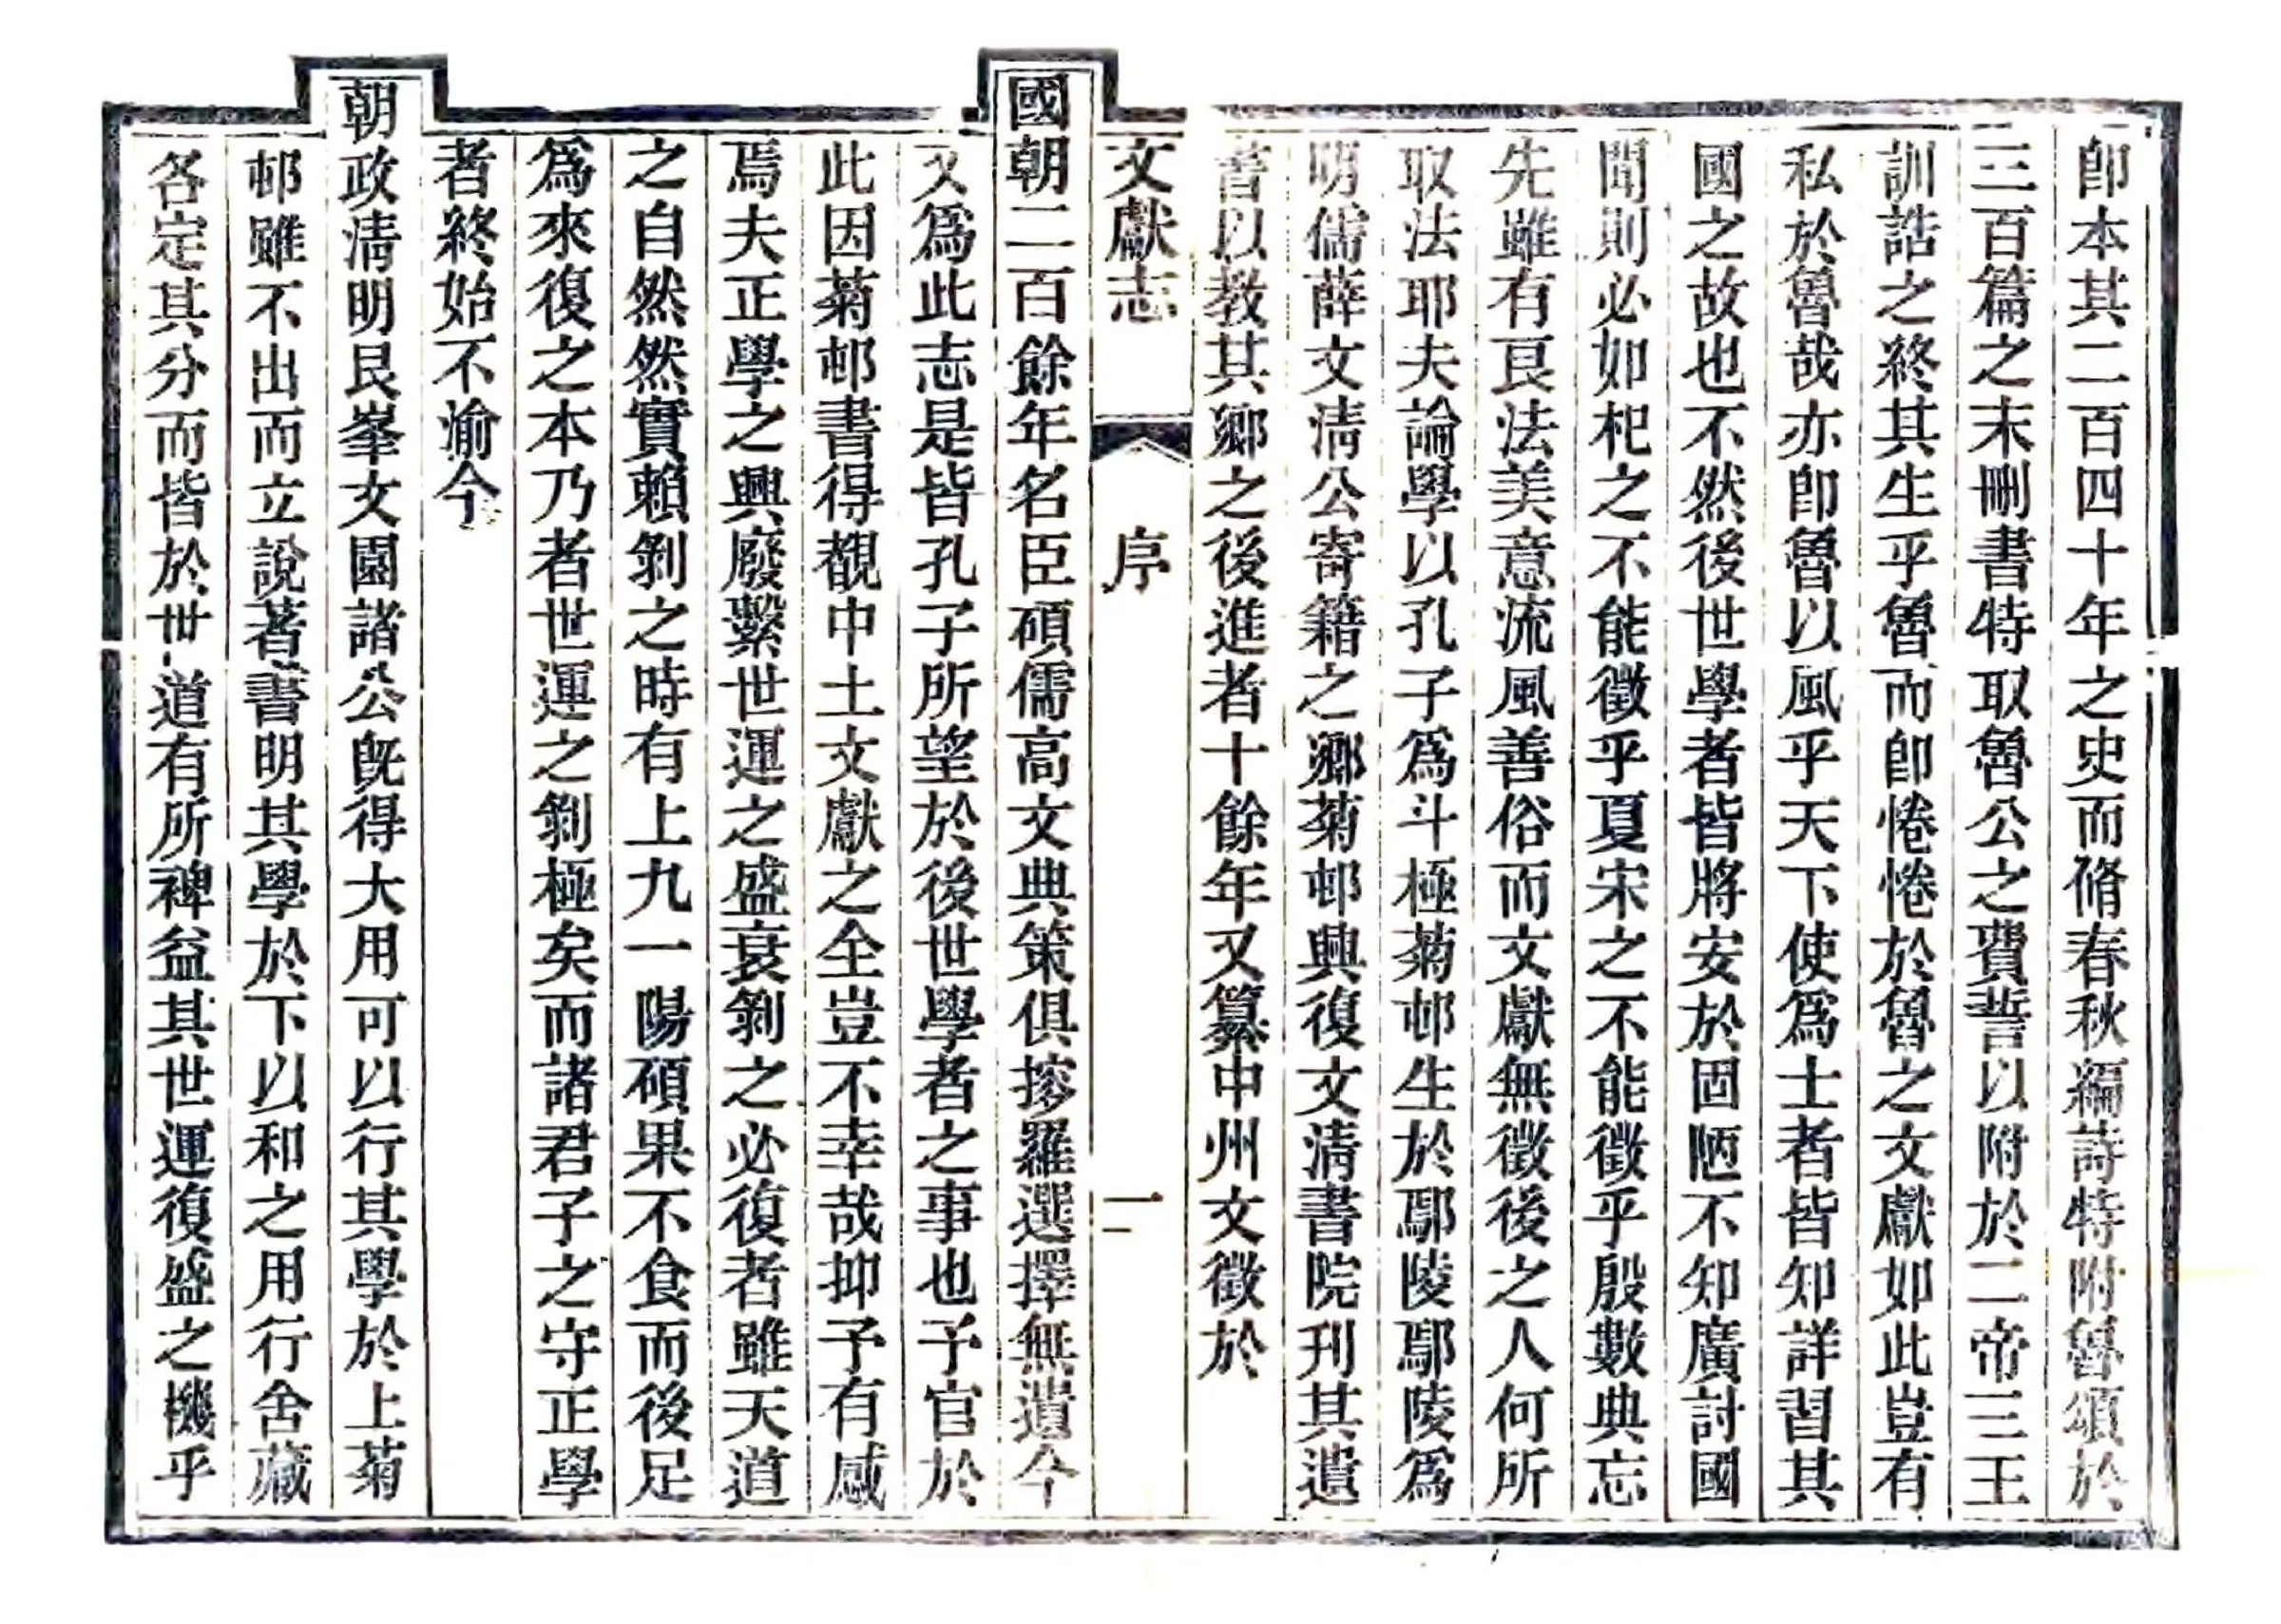 卽本其二百四十年之史而脩春秋編詩特附魯頌於
三百篇之末刪書特取魯公之費誓以附於二帝三王
訓誥之終其生乎魯而卽惓惓於魯之文獻如此豈有
私於魯哉亦卽魯以風乎天下使爲士者皆知詳習其
國之故也不然後世學者皆將安於固陋不知廣討國
聞則必如杞之不能徵乎夏宋之不能徵乎殷數典忘
先雖有良法美意流風善俗而文獻無徵後之人何所
取法耶夫論學以孔子爲斗極菊邨生於鄢陵鄢陵爲
明儒薛文淸公寄籍之鄕菊邨興復文淸書院刊其遺
書以教其鄕之後進者十餘年又纂中州文徵於
文獻志 序 一
國朝二百餘年名臣碩儒高文典策俱摻羅選擇無遺今
又爲此志是皆孔子所望於後世學者之事也予官於
此因菊邨書得覩中土文獻之全豈不幸哉抑予有感
焉夫正學之興廢繫世運之盛衰剝之必復者雖天道
之自然然實賴剝之時有上九一陽碩果不食而後足
爲來復之本乃者世運之剝極矣而諸君子之守正學
者終始不渝今
朝政淸明艮峯文園諸公旣得大用可以行其學於上菊
邨雖不出而立說著書明其學於下以和之用行舍藏
各定其分而皆於世道有所裨益其世運復盛之機乎